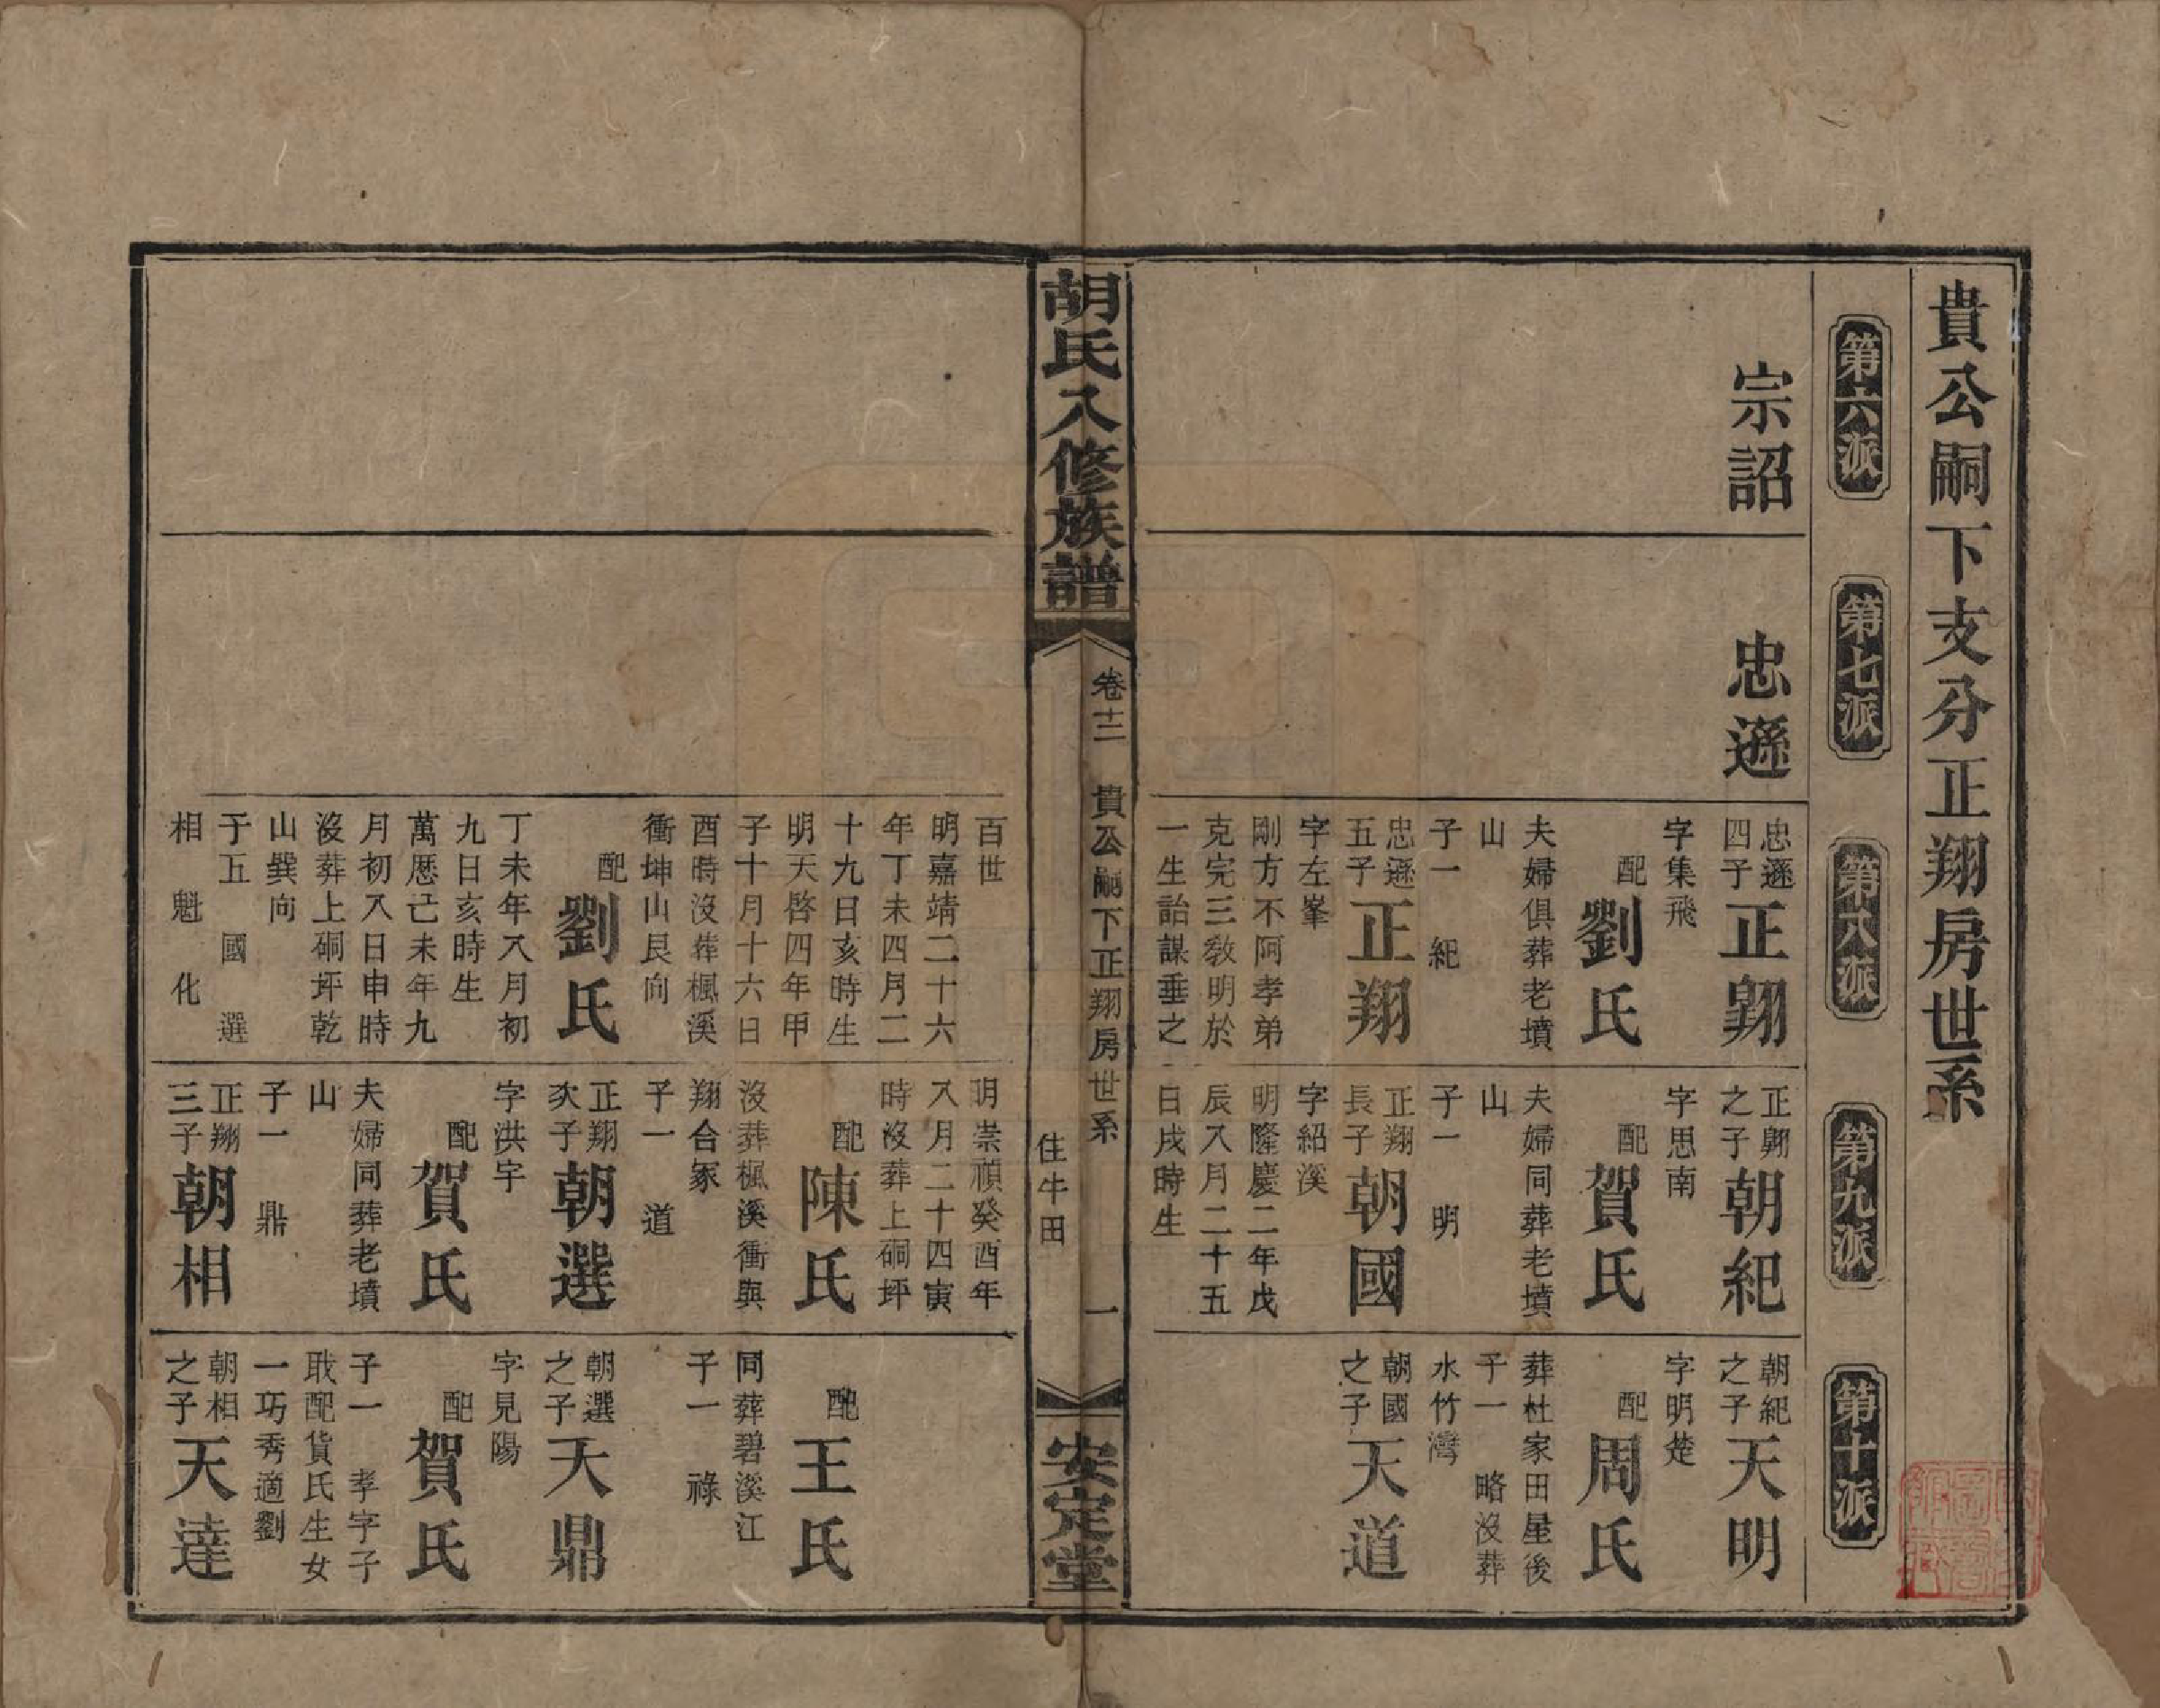 貴公嗣下支分正翔房世系
第六派
第七派
第八派
第九派
第十派
宗詔
忠遜
忠遜四子
正翺
字集飛
配
劉氏
夫婦俱葬老墳
山
子一 紀
忠遜五子
正翔
字左峯
剛方不阿孝弟
克完三教明於
一生詒謀垂之
正翺之子
朝紀
字思南
配
賀氏
夫婦同葬老墳
山
子一 明
正翔長子
朝國
字紹溪
明隆慶二年戊
辰八月二十五
日戌時生
朝紀之子
天明
字明楚
配
周氏
葬杜家田星後
子一 略沒葬
水竹灣
朝國之子
天道
胡氏八修族譜
卷十二 貴公嗣下正翔房世系 一
住牛田
安定堂
百世
明嘉靖二十六
年丁未四月二
十九日亥時生
明天啓四年甲
子十月十六日
酉時沒葬楓溪
衝坤山艮向
配
劉氏
丁未年八月初
九日亥時生
萬歷己未年九
月初八日申時
沒葬上硐坪乾
山巽向
子五 國 選
相 魁 化
明崇禎癸酉年
八月二十四寅
時沒葬上硐坪
配
陳氏
沒葬楓溪衝與
翔合冢
子一 道
正翔次子
朝選
字洪宇
配
賀氏
夫婦同葬老墳
山
子一 鼎
正翔三子
朝相
配
王氏
同葬碧溪江
子一 祿
朝選之子
天鼎
字見陽
配
賀氏
子一 孝字子
耴配貨氏生女
一巧秀適劉
朝相之子
天達